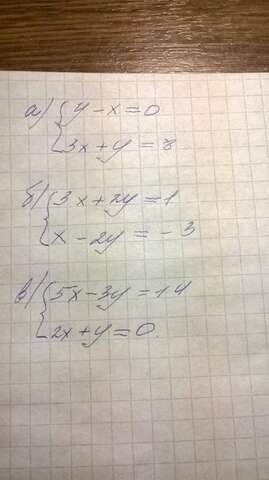 а) { y - x = 0
3x + y = 8
б) { 3x + 2y = 1
x - 2y = -3
в) { 5x - 3y = 14
2x + y = 0.